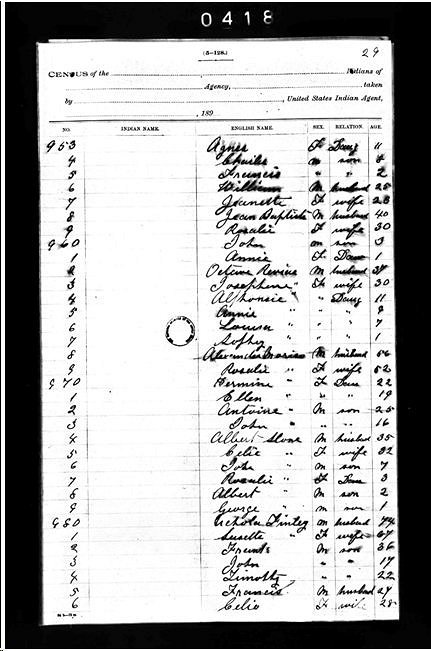 0418
(5-128.) 29
CENSUS of the Indians of
Agency, taken
by , United States Indian Agent,
, 189
NO. INDIAN NAME. ENGLISH NAME. SEX. RELATION. AGE.
953 Agnes F Daug 11
4 Charles m son
5 Francis " " 2
6 William M husband 25
7 Jeanette F wife 23
8 Jean Baptiste M husband 40
9 Rosalie F wife 30
960 John m son 3
1 Annie F Dau 1
2 Octave Revius M husband
3 Josephine " F wife 30
4 Alphonsie " " Daug 11
5 Annie " " " 9
6 Louisa " " " 7
7 Sophy " " " 1
8 Alexander M husband 56
9 Rosalie " F wife 52
970 Hermine " F Dau 22
1 Ellen " " " 19
2 Antoine " M son 25
3 John " " " 16
4 Albert Slone M husband 35
5 Celie " F wife 32
6 John " M son 7
7 Rosalie " F Dau 3
8 Albert " M son 2
9 George " m son 1
980 Nichola Finley m husband 74
1 Susette " F wife 67
2 M son 36
3 John " " 17
4 Timothy " " 22
5 Francis M husband 27
6 Celie F wife 28